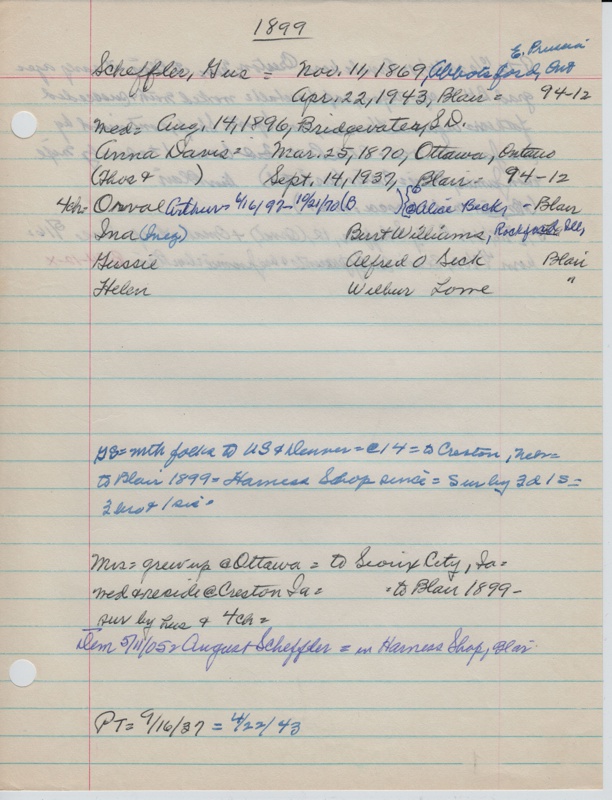 1899
E. Prussia
Scheffler, Gus = Nov. 11, 1869, Abbotsford, Ont
Apr. 22, 1943, Blair = 94-12
med = Aug. 14, 1896, Bridgewater, S.D.
Anna Davis = Mar. 25, 1870, Ottawa, Ontario
(Thos & ) Sept. 14, 1937, Blair = 94-12
4ch = Orval Arthur = 6/16/97 - 10/21/70 (B ) @ Alice Beck, - Blair
Ina (Inez) Burt Williams, Rockford Ill,
Gussie Alfred O Seck Blair
Helen Wilbur Lowe "
GS = with folks to US & Denver = @ 14 = to Creston, Nebr =
to Blair 1899 = Harness Shop since = Sur by 3d 1s =
2 bro & 1 sis.
Mrs = grew up @ Ottawa = to Sioux City, Ia =
med & reside @ Creston Ia = = to Blair 1899 -
sur by hus & 4ch =
Dem 5/11/05 = August Scheffler = in Harness Shop, Blair
PT = 9/16/37 = 4/22/43